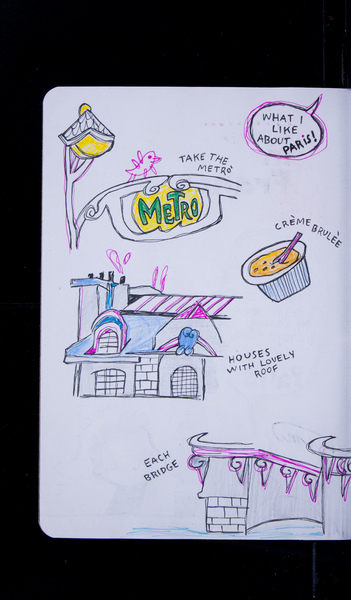 WHAT I
LIKE
ABOUT
PARiS!
TAKE THE
METRO
METRO
CRÈME BRULÈE
HOUSES
WITH LOVELY
ROOF
EACH
BRIDGE